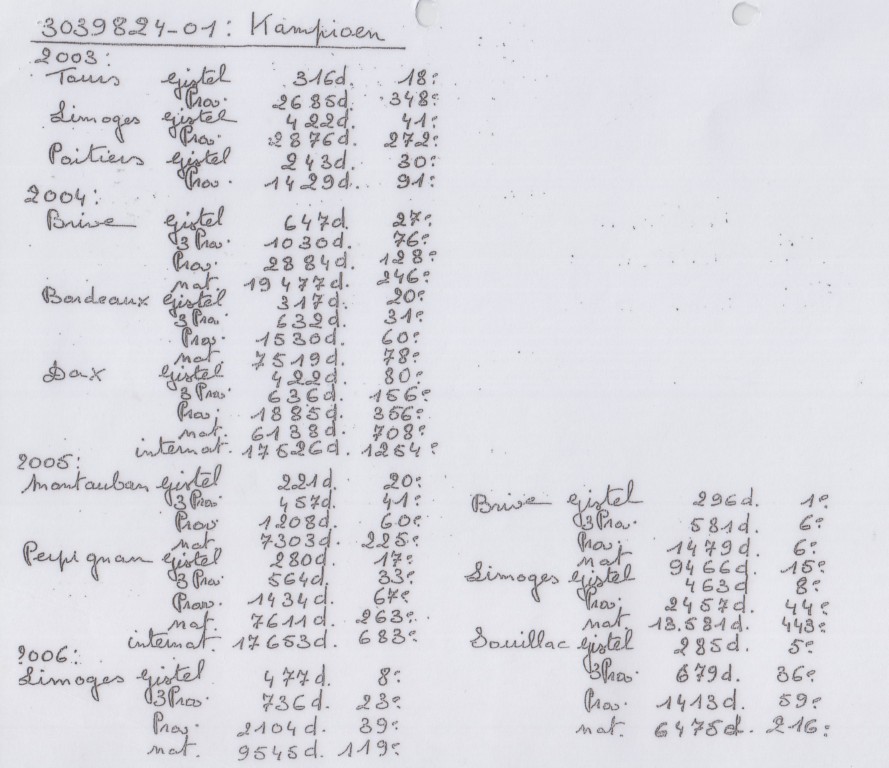 3039824-01: Kampioen
2003:
Tours Gistel 316d. 18e
Prov. 2685d. 348e
Limoges Gistel 422d. 41e
Prov. 2876d. 272e
Poitiers Gistel 243d. 30e
Prov. 1429d. 91e
2004:
Brive Gistel 647d. 27e
3Prov. 1030d. 76e
Prov. 2884d. 128e
nat. 19477d. 246e
Bordeaux Gistel 317d. 20e
3Prov. 632d. 31e
Prov. 1530d. 60e
nat. 7519d. 78e
Dax Gistel 422d. 80e
3Prov. 636d. 156e
Prov. 1885d. 356e
nat. 6138d. 708e
internat. 17526d. 1254e
2005:
Montauban Gistel 221d. 20e
3Prov. 457d. 41e
Prov 1208d. 60e
nat 7303d. 225e
Perpignan Gistel 280d. 17e
3Prov. 564d. 33e
Prov. 1434d. 67e
nat. 7611d. 263e
internat. 17653d. 683e
2006:
Limoges Gistel 477d. 8e
3Prov. 736d. 23e
Prov. 2104d. 39e
nat. 9545d. 119e
Brive Gistel 296d. 1e
3Prov. 581d. 6e
Prov. 1479d. 6e
nat 9466d. 15e
Limoges Gistel 463d 8e
Prov. 2457d. 44e
nat. 13.581d. 443e
Souillac Gistel 285d. 5e
3Prov. 679d. 36e
Prov. 1413d. 59e
nat. 6475d. 216e